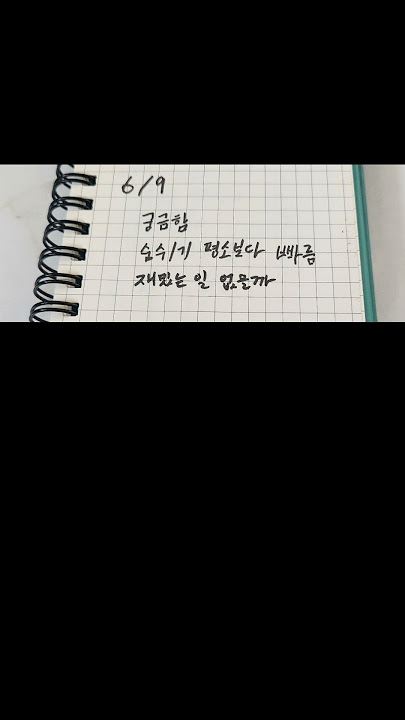 6/9
궁금함
숨쉬기 평소보다 빠름
재밌는 일 없을까